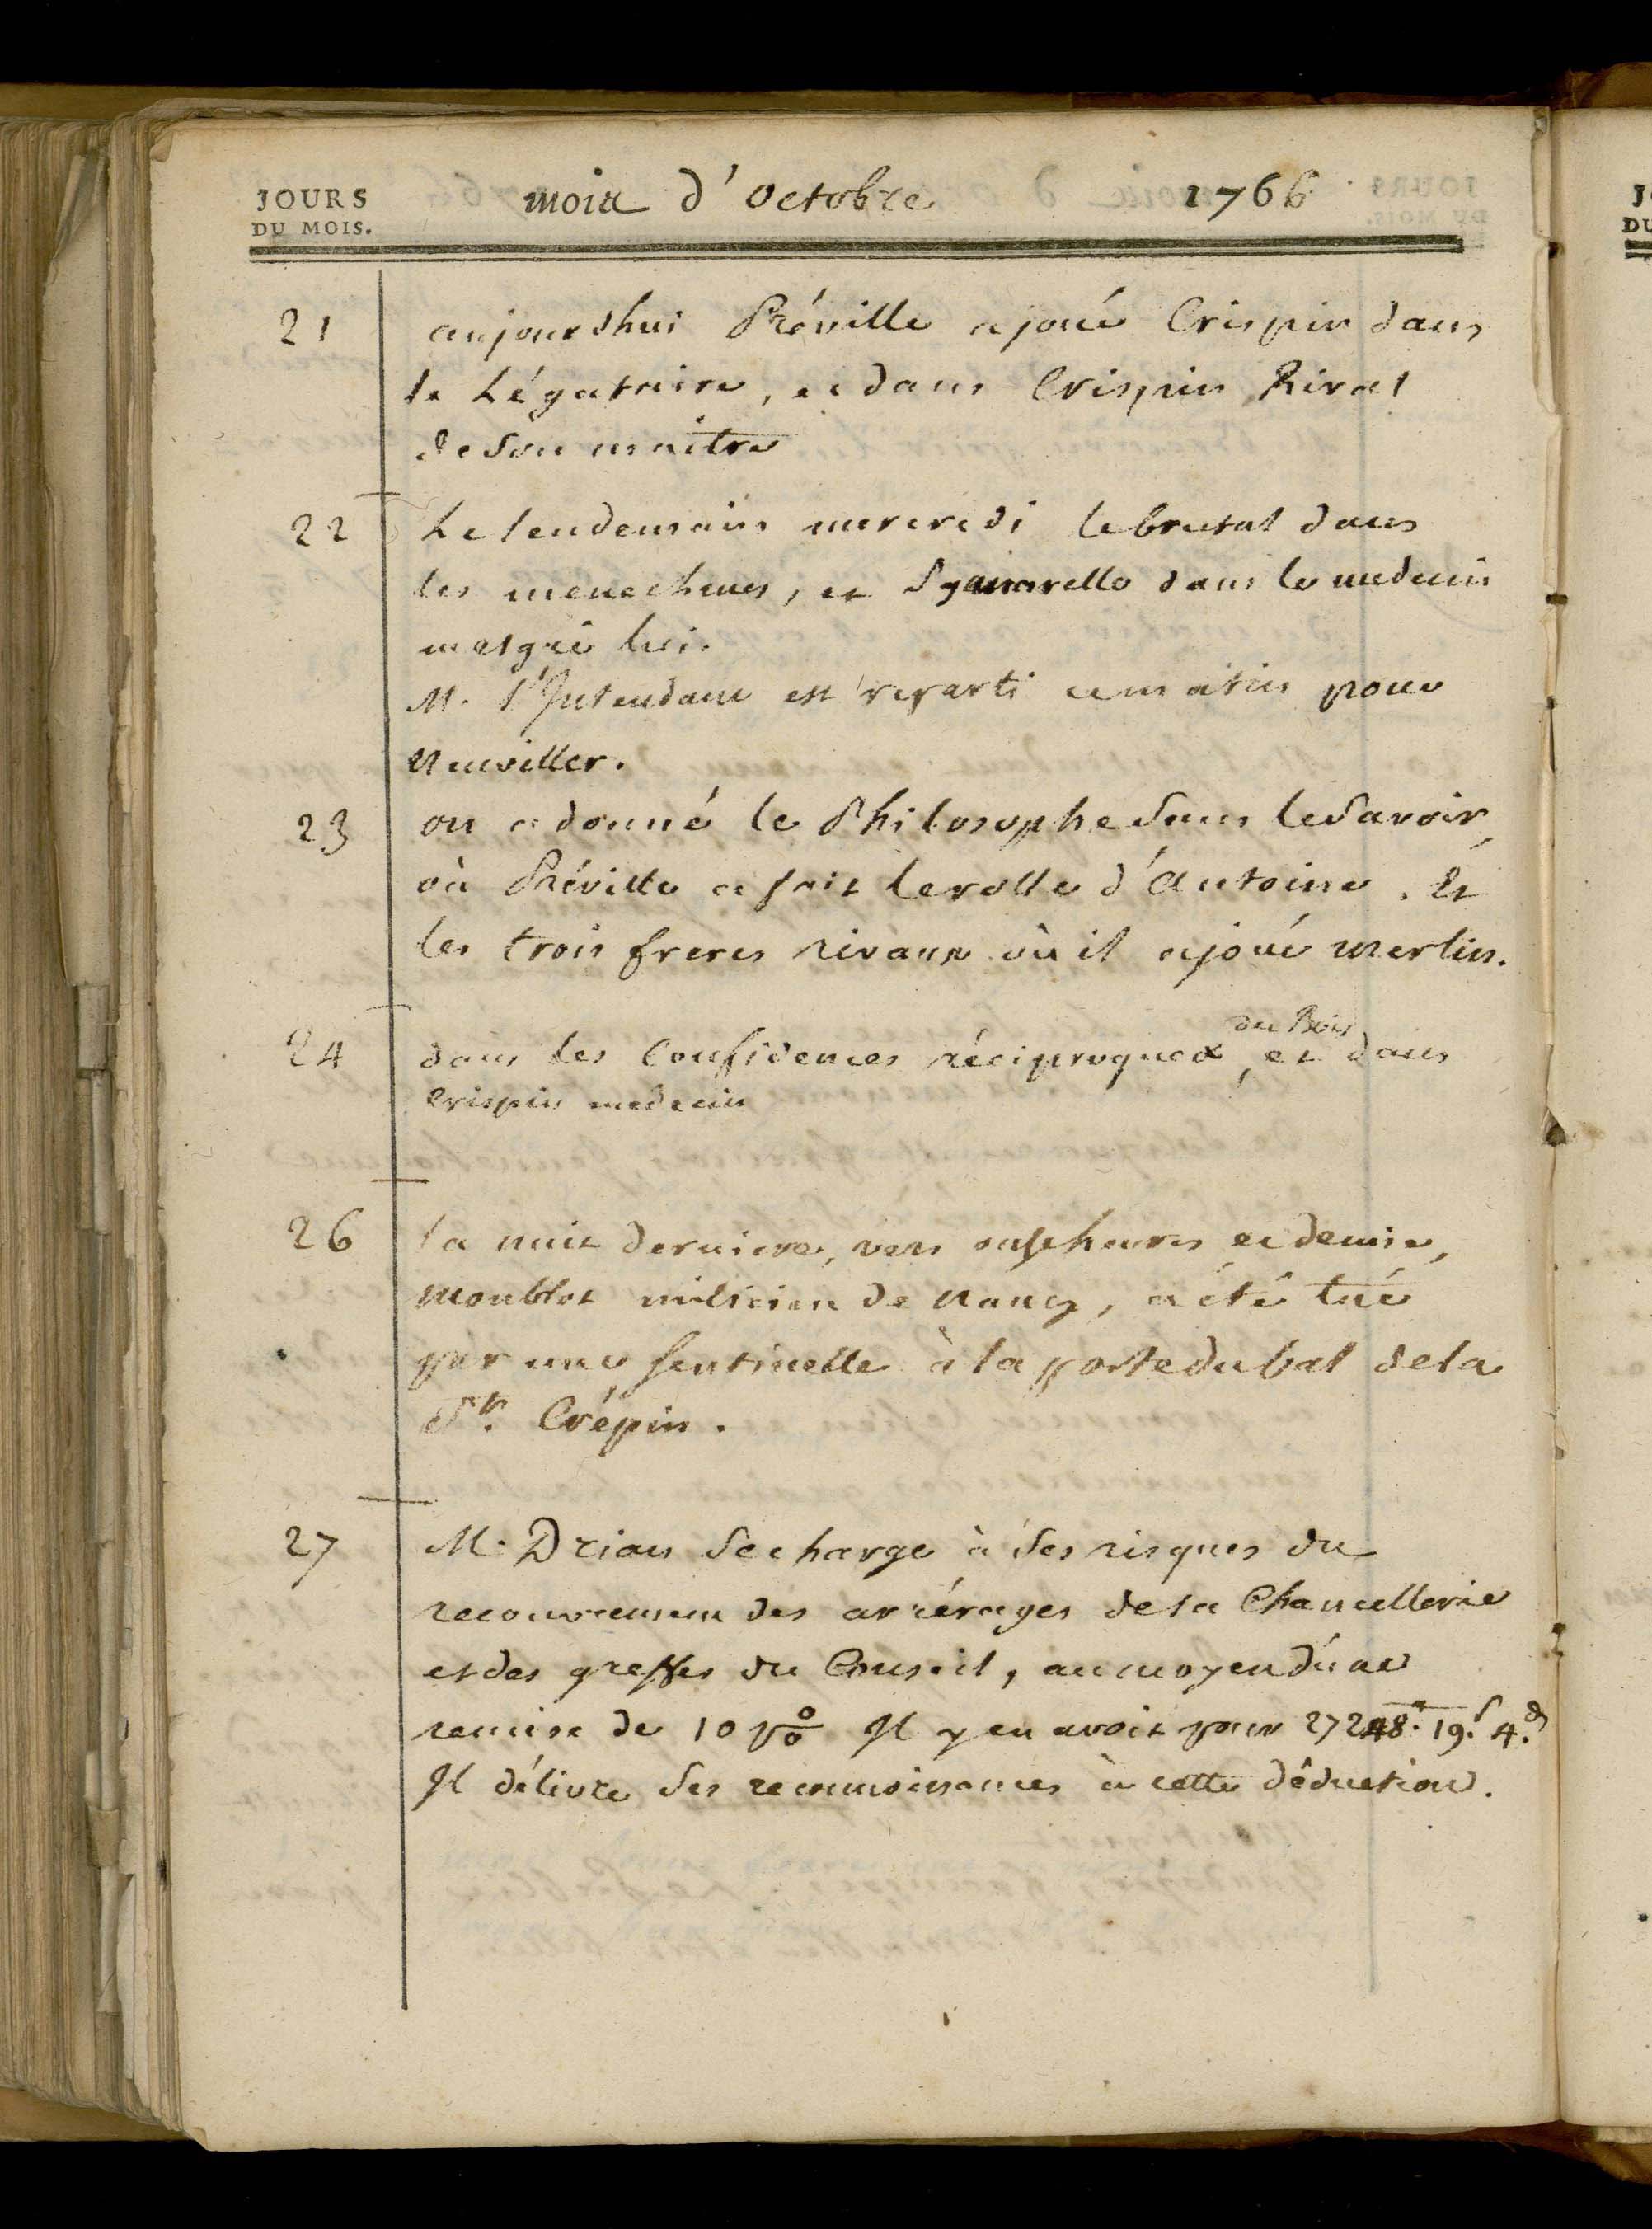 JOURS DU MOIS. mois d'octobre 1766
21 aujourdhui Préville a joué Crispin dans
le Légataire, et dans Crispin Rival
de son maître
22 Le lendemain mercredi le brutal dans
les menechmes, et Sganarelle dans le medecin
malgré lui.
M. l'Intendant est reparti ce matin pour
Neuviller.
23 on a donné le Philosophe sans le savoir,
où Préville a fait le rolle d'Antoine. Et
les trois freres rivaux où il a joué merlin.
du Bois
24 dans les Confidences réciproques, et dans
Crispin medecin
26 la nuit derniere, vers onse heures et demie,
Monblot milicien de Nancy, a été tué
par une sentinelle à la porte du bal de la
St. Crépin.
27 M. Drian se charge à ses risques du
recouvrement des arrérages de la Chancellerie
et des greffes du Conseil, au moyen d'une
remise de 10 p% Il y en avoit pour 27248. 19.s 4.d
Il délivre ses reconnoissances à cette déduction.